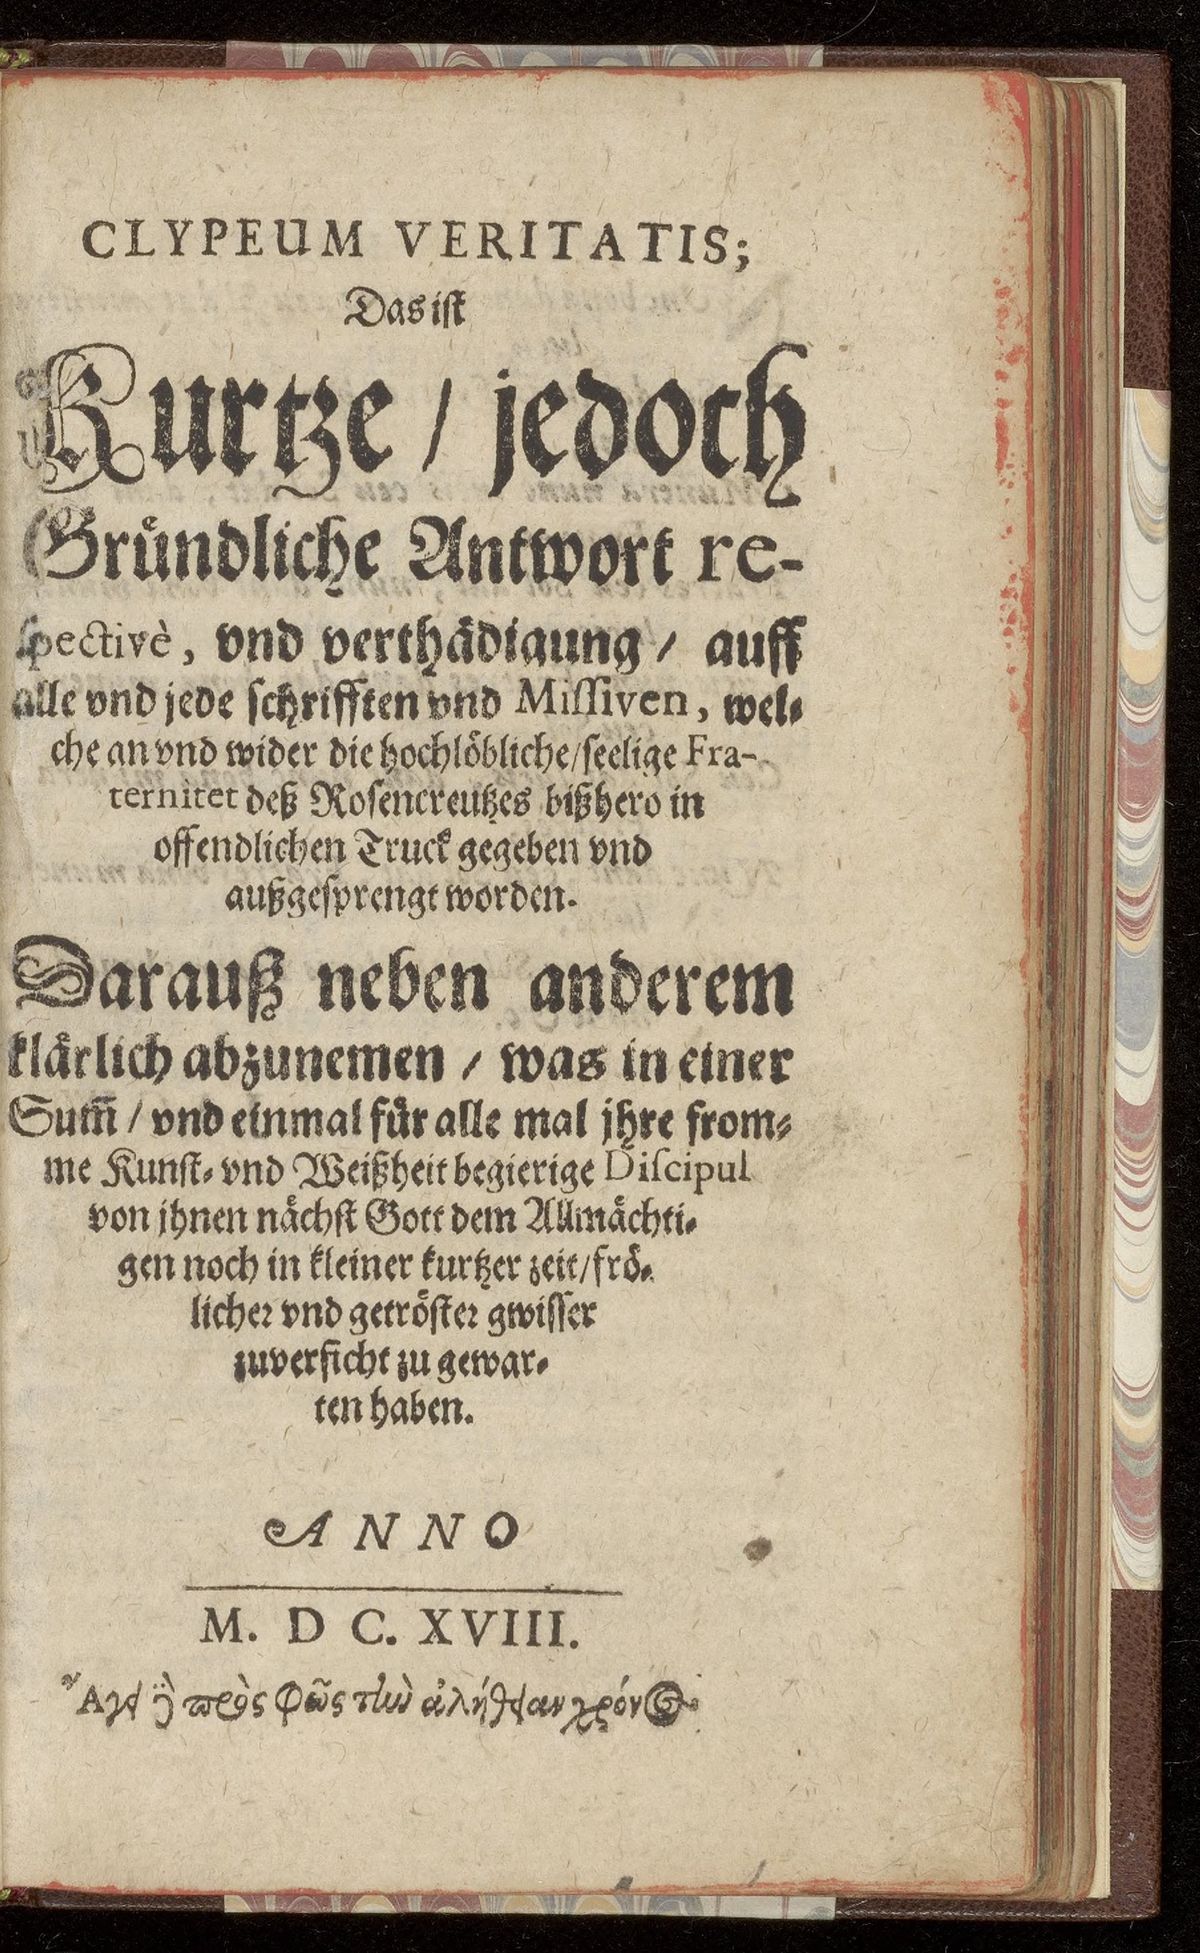 CLYPEUM VERITATIS;
Das ist
Kurtze / jedoch
Gründliche Antwort re-
spectivè, vnd verthädigung / auff
alle vnd jede schrifften vnd Missiven, wel-
che an vnd wider die hochlöbliche / seelige Fra-
ternitet deß Rosencreutzes bißhero in
offendlichen Truck gegeben vnd
außgesprengt worden.
Darauß neben anderem
klärlich abzunemen / was in einer
Sum̃ / vnd einmal für alle mal jhre from-
me Kunst- vnd Weißheit begierige Discipul
von jhnen nächst Gott dem Allmächti-
gen noch in kleiner kurtzer zeit / frö-
licher vnd getröster gwisser
zuversicht zu gewar-
ten haben.
ANNO
M. D C. XVIII.
Ἄγει πρὸς φῶς τὴν ἀλήθειαν χρόνος